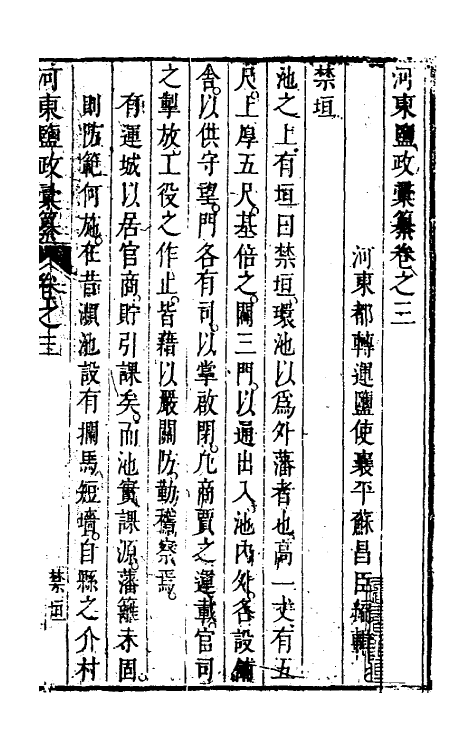 河東鹽政彙纂卷之三
河東都轉運鹽使襄平蘇昌臣編輯
禁垣
池之上有垣曰禁垣。環池以爲外藩者也。高一丈有五
尺。上厚五尺。基倍之。闢三門。以通出入。池內外。各設鋪
舍。以供守望。門各有司。以掌啟閉。凢商賈之運載。官司
之掣放。工役之作止。皆藉以嚴關防。勤稽察焉。
有運城以居官商。貯引課矣。而池實課源。藩籬未固。
則防範何施。在昔瀕池設有攔馬短墻。自縣之介村
河東鹽政彙纂 卷之三
禁垣